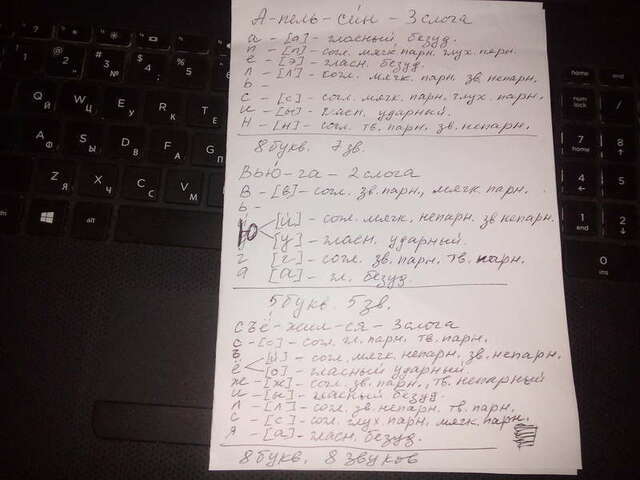 А-пель-си́н - 3 слога
а - [а] - гласный безуд.
п - [п] - согл. мягк. парн. глух. парн.
е - [э] - гласн. безуд.
л - [л] - согл. мягк. парн. зв. непарн.
ь -
с - [с] - согл. мягк. парн. глух. парн.
и - [и] - гласн. ударный.
н - [н] - согл. тв. парн. зв. непарн.
8 букв. 7 зв.
Вью́-га - 2 слога
в - [в] - согл. зв. парн., мягк. парн.
ь -
ю [й] - согл. мягк. непарн. зв непарн.
[у] - гласн. ударный.
г [г] - согл. зв. парн. тв. парн.
а [а] - гл. безуд.
5 букв. 5 зв.
съё-жил-ся - 3 слога
с - [с] - согл. гл. парн. тв. парн.
ъ
ё [й] - согл. мягк. непарн. зв. непарн.
[о] - гласный ударный.
ж - [ж] - согл. зв. парн., тв. непарный
и - [ы] - гласный безуд.
л - [л] - согл. зв. непарн. тв. парн.
с - [с] - согл. глух. парн. мягк. парн.
я - [а] - гласн. безуд.
8 букв, 8 звуков
home
end
num lock
7
8
4
5
1 end
2
0 ins
alt
Й
Ц
У
К
Ф
Ы
В
А
Я
Ч
С
М